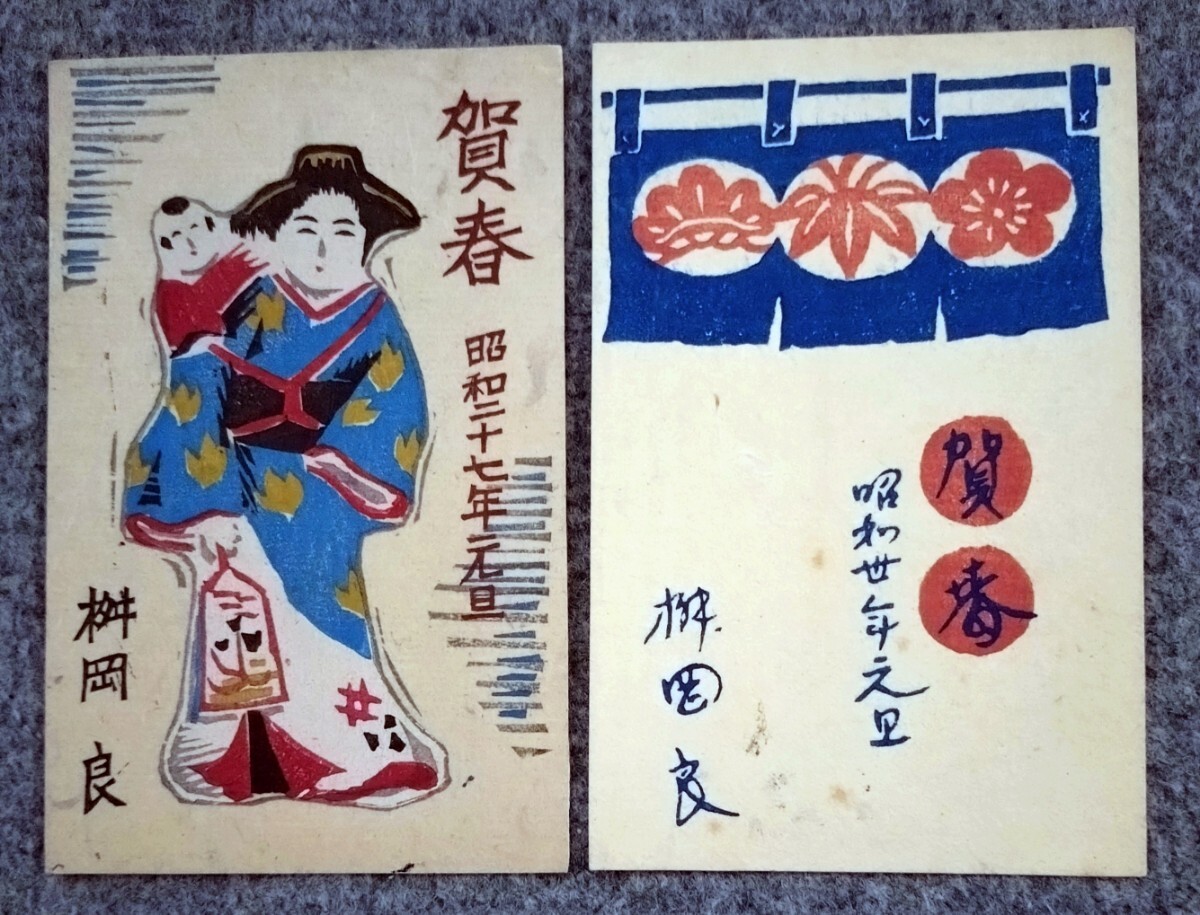 賀春
昭和二十七年元旦
桝岡良
賀春
昭和丗年元旦
桝岡良